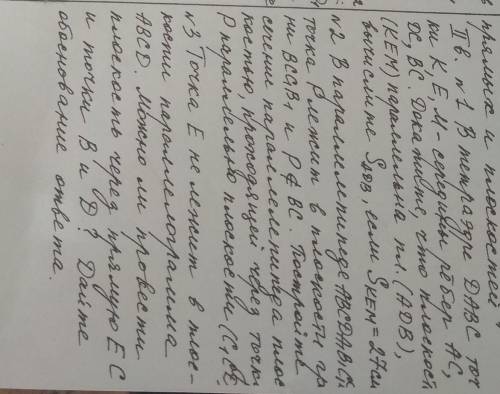 прямых и плоскостей
IIв. №1 В тетраэдре DABC точ
ки K, E, M - середины рёбер AC,
DC, BC. Докажите, что плоскость
(KEM) параллельна пл. (ADB),
вычислите SADB, если SKEM = 27см
№2 В параллелепипеде ABCDA1B1C1
точка P лежит в плоскости гр
ни BCC1B1 и P ∉ BC. Постройте
сечение параллелепипеда плос
костью, проходящей через точку
P параллельно плоскости (C1
№3 Точка E не лежит в плос-
кости параллелограмма
ABCD. Можно ли провести
плоскость через прямую EC
и точки B и D? Дайте
обоснование ответа.